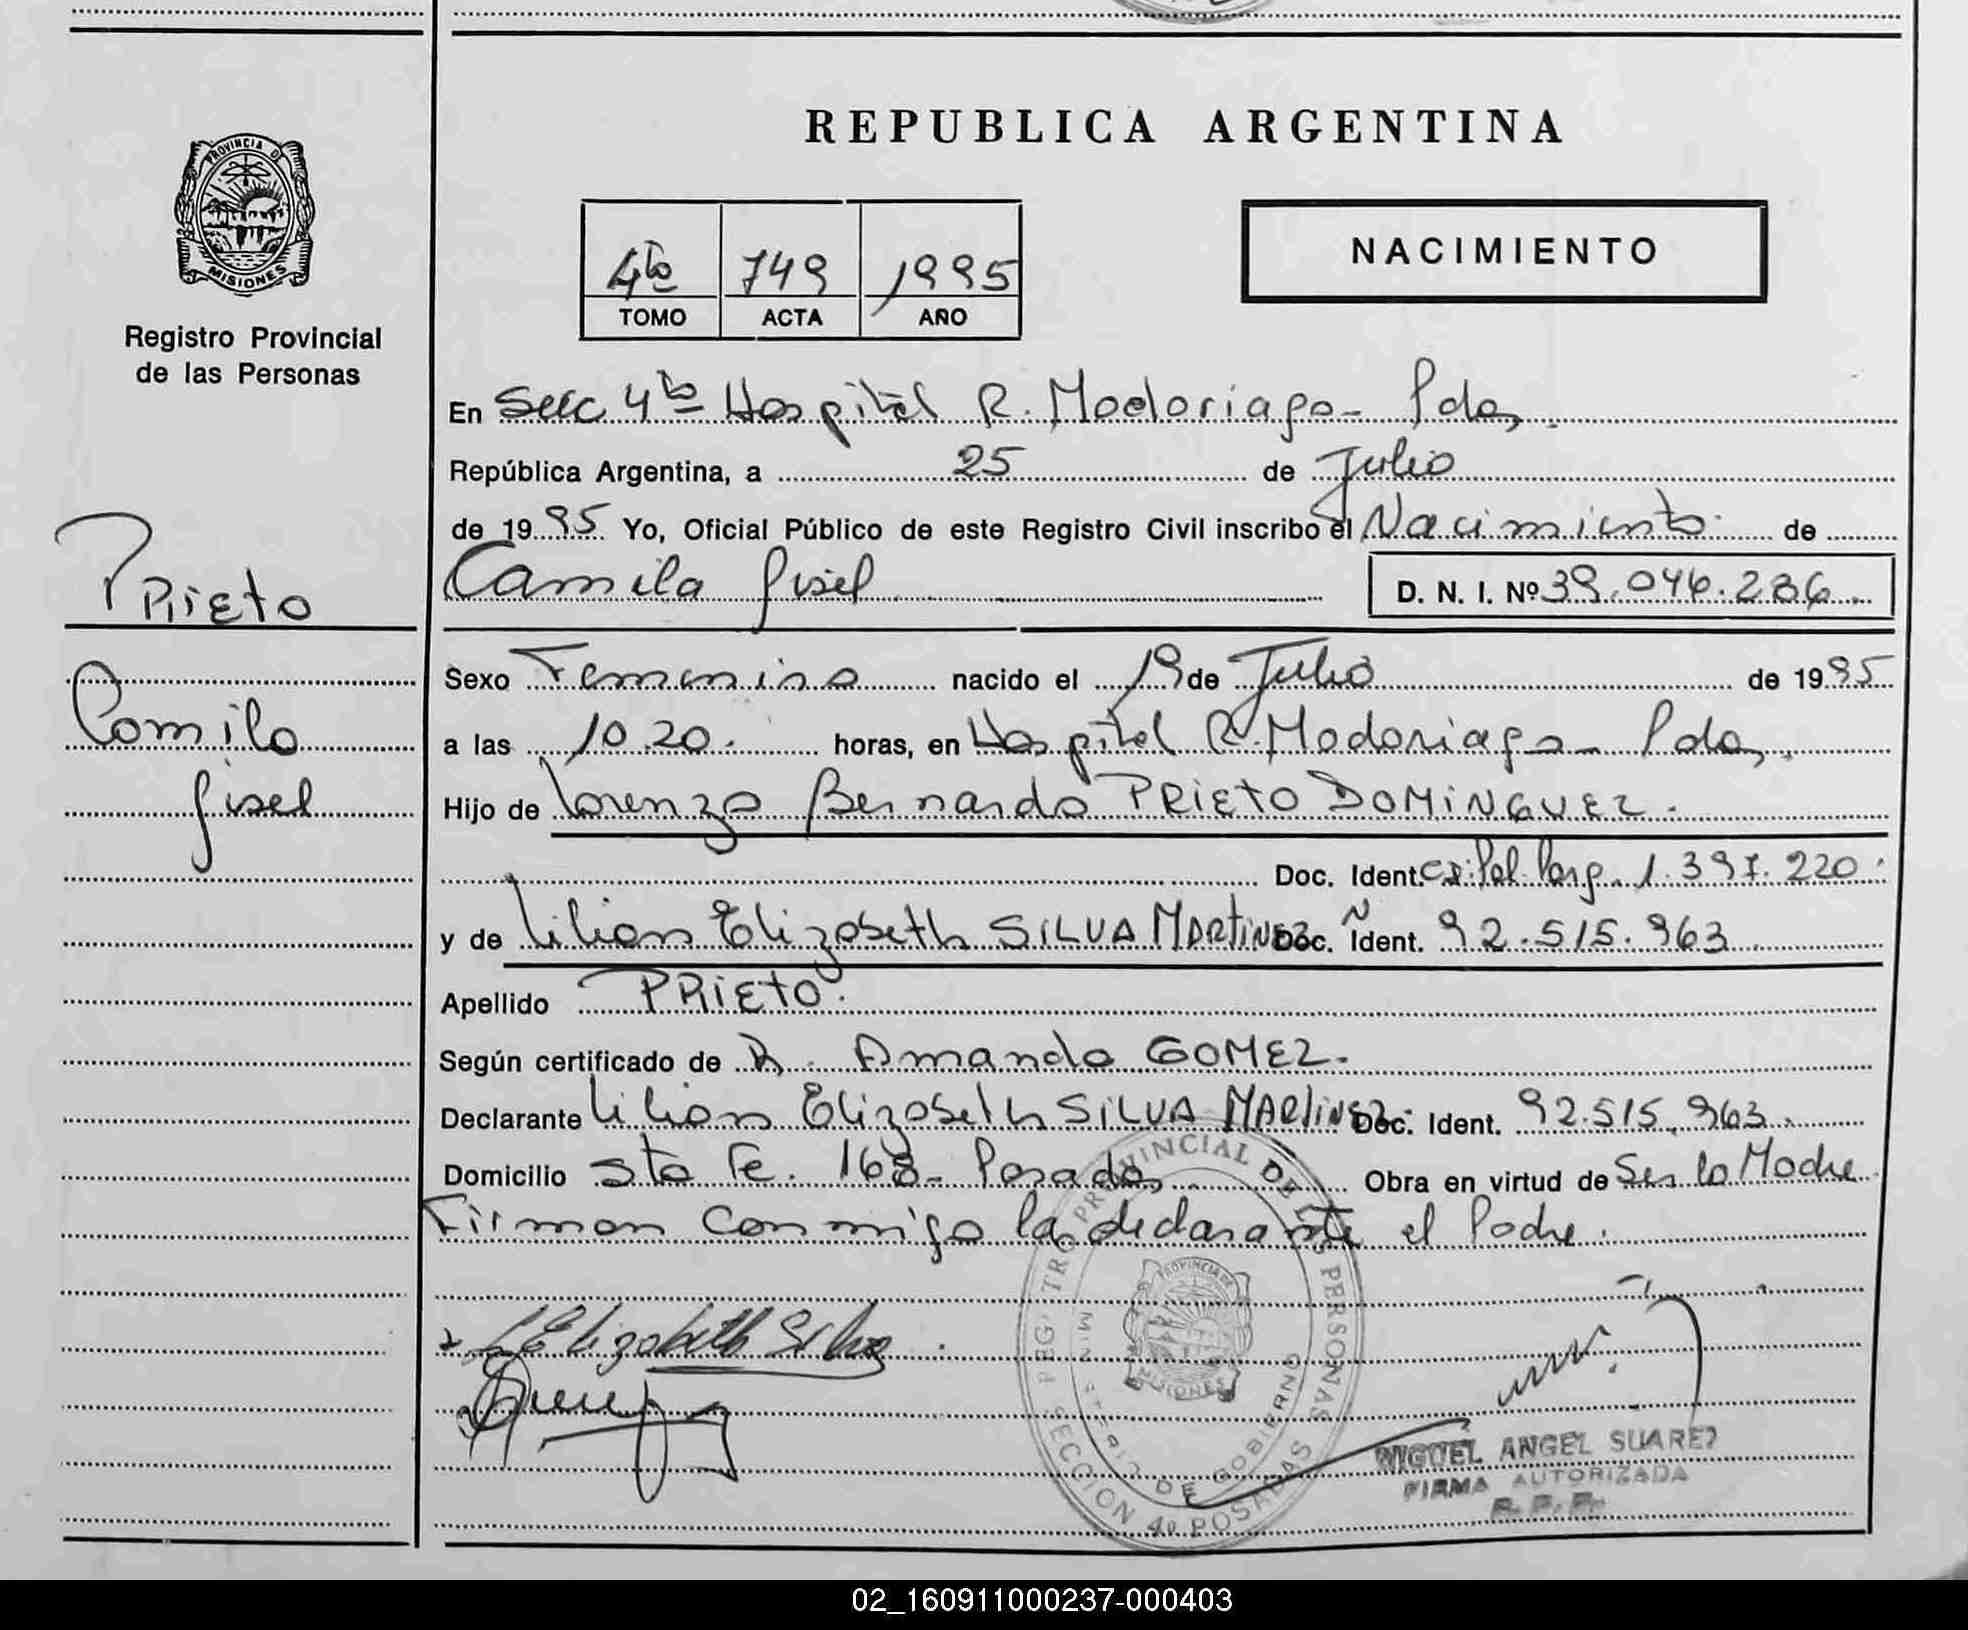 REPUBLICA ARGENTINA
PROVINCIA DE
MISIONES
Registro Provincial
de las Personas
NACIMIENTO
4to 749 1995
TOMO ACTA AÑO
En Secc 4ta Hospital R. Madariaga - Pdas
República Argentina, a 25 de Julio
de 1995 Yo, Oficial Público de este Registro Civil inscribo el Nacimiento de
Camila Gisel D. N. I. Nº 39.046.286
PRIETO
Camila
Gisel
Sexo Femenino nacido el 19 de Julio de 1995
a las 10.20. horas, en Hospital R. Madariaga - Pdas
Hijo de Lorenzo Bernardo PRIETO DOMINGUEZ.
Doc. Ident. Pol. Parg. 1.397.220
y de Lilian Elizabeth SILVA MARTINEZ Doc. Ident. 92.515.963
Apellido PRIETO.
Según certificado de Amanda GOMEZ.
Declarante Lilian Elizabeth SILVA MARTINEZ Doc. Ident. 92.515.963
Domicilio Sta Fe. 168 - Posadas Obra en virtud de Ser la Madre
Firman conmigo la declarante el Padre.
L Elizabeth Silva
REGISTRO PROVINCIAL DE LAS PERSONAS
MINISTERIO DE GOBIERNO
PROVINCIA DE
MISIONES
SECCION 4º POSADAS
MIGUEL ANGEL SUAREZ
FIRMA AUTORIZADA
R. P. P.
02_160911000237-000403